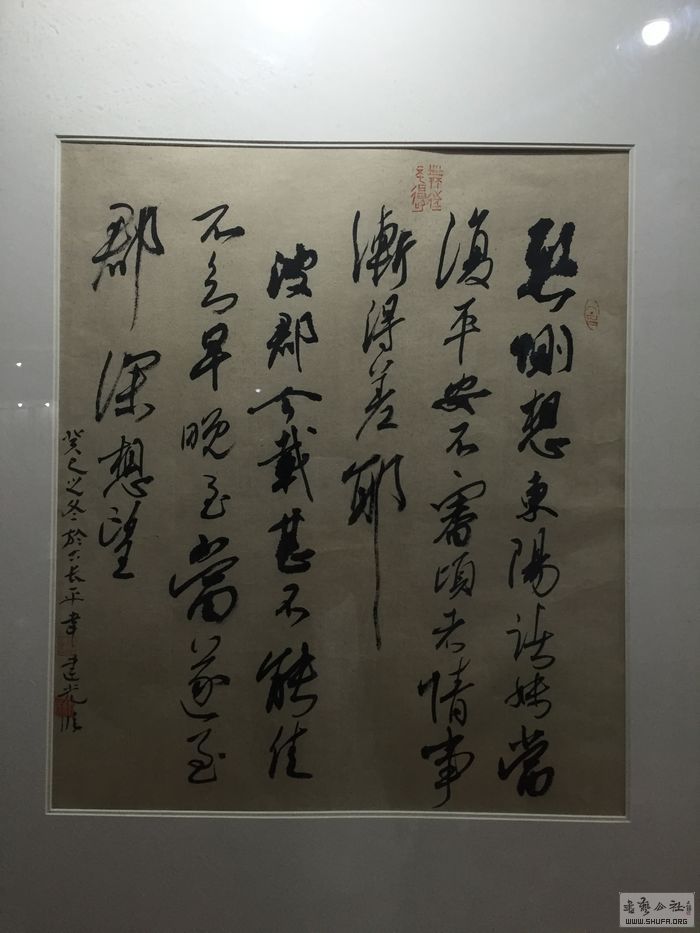 慰惻想東陽諸妹當
復平安不審頃者情事
漸得差耶
彼郡今載甚不能佳
不知早晚至當遂至
郡深想望
癸巳之冬於古長平韋建光临
書藝公社
WWW.SHUFA.ORG